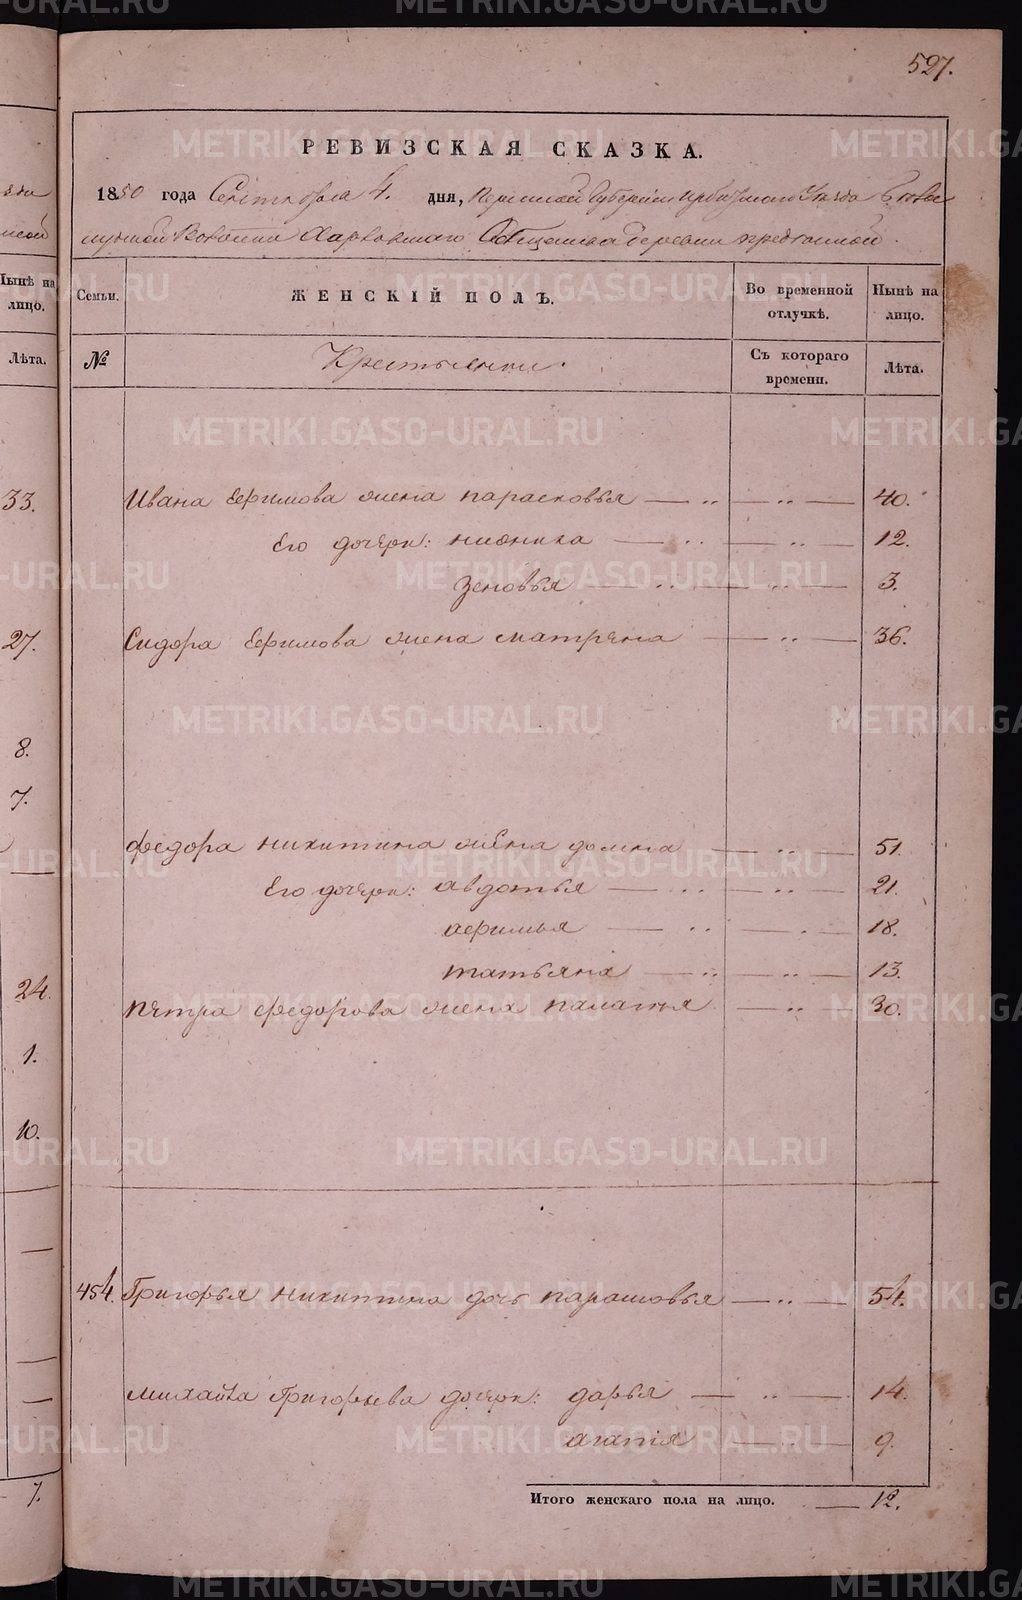 527.
РЕВИЗСКАЯ СКАЗКА.
1850 года Сентября 4. дня, Пермской Губернии Ирбитскаго Уезда
Волости Харловскаго Общества деревни
Семьи. ЖЕНСКІЙ ПОЛЪ. Во временной отлучкѣ. Нынѣ на лицо.
№ Крестьянки. Съ котораго времени. Лѣта.
Ивана Ефимова жена парасковья — „ — „ — 40.
Его дочери: — „ — „ — 12.
Зеновья — „ — „ — 3.
Сидора Ефимова жена матрена — „ — 36.
федора никитина жена домна — „ — 51.
Его дочери: авдотья — „ — „ — 21.
афимья — „ — „ — 18.
татьяна — „ — „ — 13.
петра федорова жена палагья — „ — 30.
454. Григорья никитина дочь парасковья — „ — 54.
михайла Григорьева дочери: дарья — „ — 14.
агапія — „ — 9.
Итого женскаго пола на лицо. — 12.
Нынѣ на лицо.
Лѣта.
33.
27.
8.
7.
24.
1.
10.
7.
METRIKI.GASO-URAL.RU